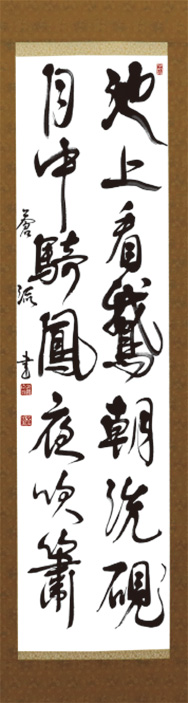 池上看鵞朝洗硯
月中騎鳳夜吹簫
蒼 書